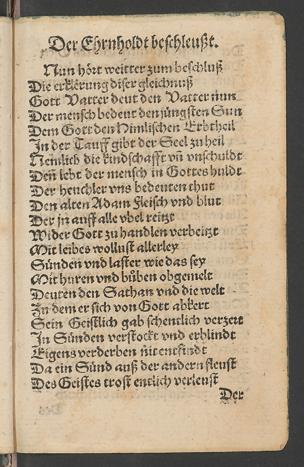 Der Ehrnholdt beschleußt.
Nun hört weitter zum beschluß
Die erklerung diser gleichnuß
Gott Vatter deut den Vatter nun
Der mensch bedeut den jüngsten Sun
Dem Gott den Himlischen Erbtheil
In der Tauff gibt der Seel zu heil
Nemlich die kindschafft vñ vnschuldt
Deñ lebt der mensch in Gottes huldt
Der heuchler vns bedeuten thut
Den alten Adam Fleisch vnd blut
Der jn auff alle vbel reitzt
Wider Gott zu handlen verbeitzt
Mit leibes wollust allerley
Sünden vnd laster wie das sey
Mit huren vnd buben obgemelt
Deuten den Sathan vnd die welt
In dem er sich von Gott abkert
Sein Geistlich gab schentlich verzert
In Sünden verstockt vnd erblindt
Eigens verderben nit entfindt
Da ein Sünd auß der andern fleust
Des Geistes trost entlich verleust
Der